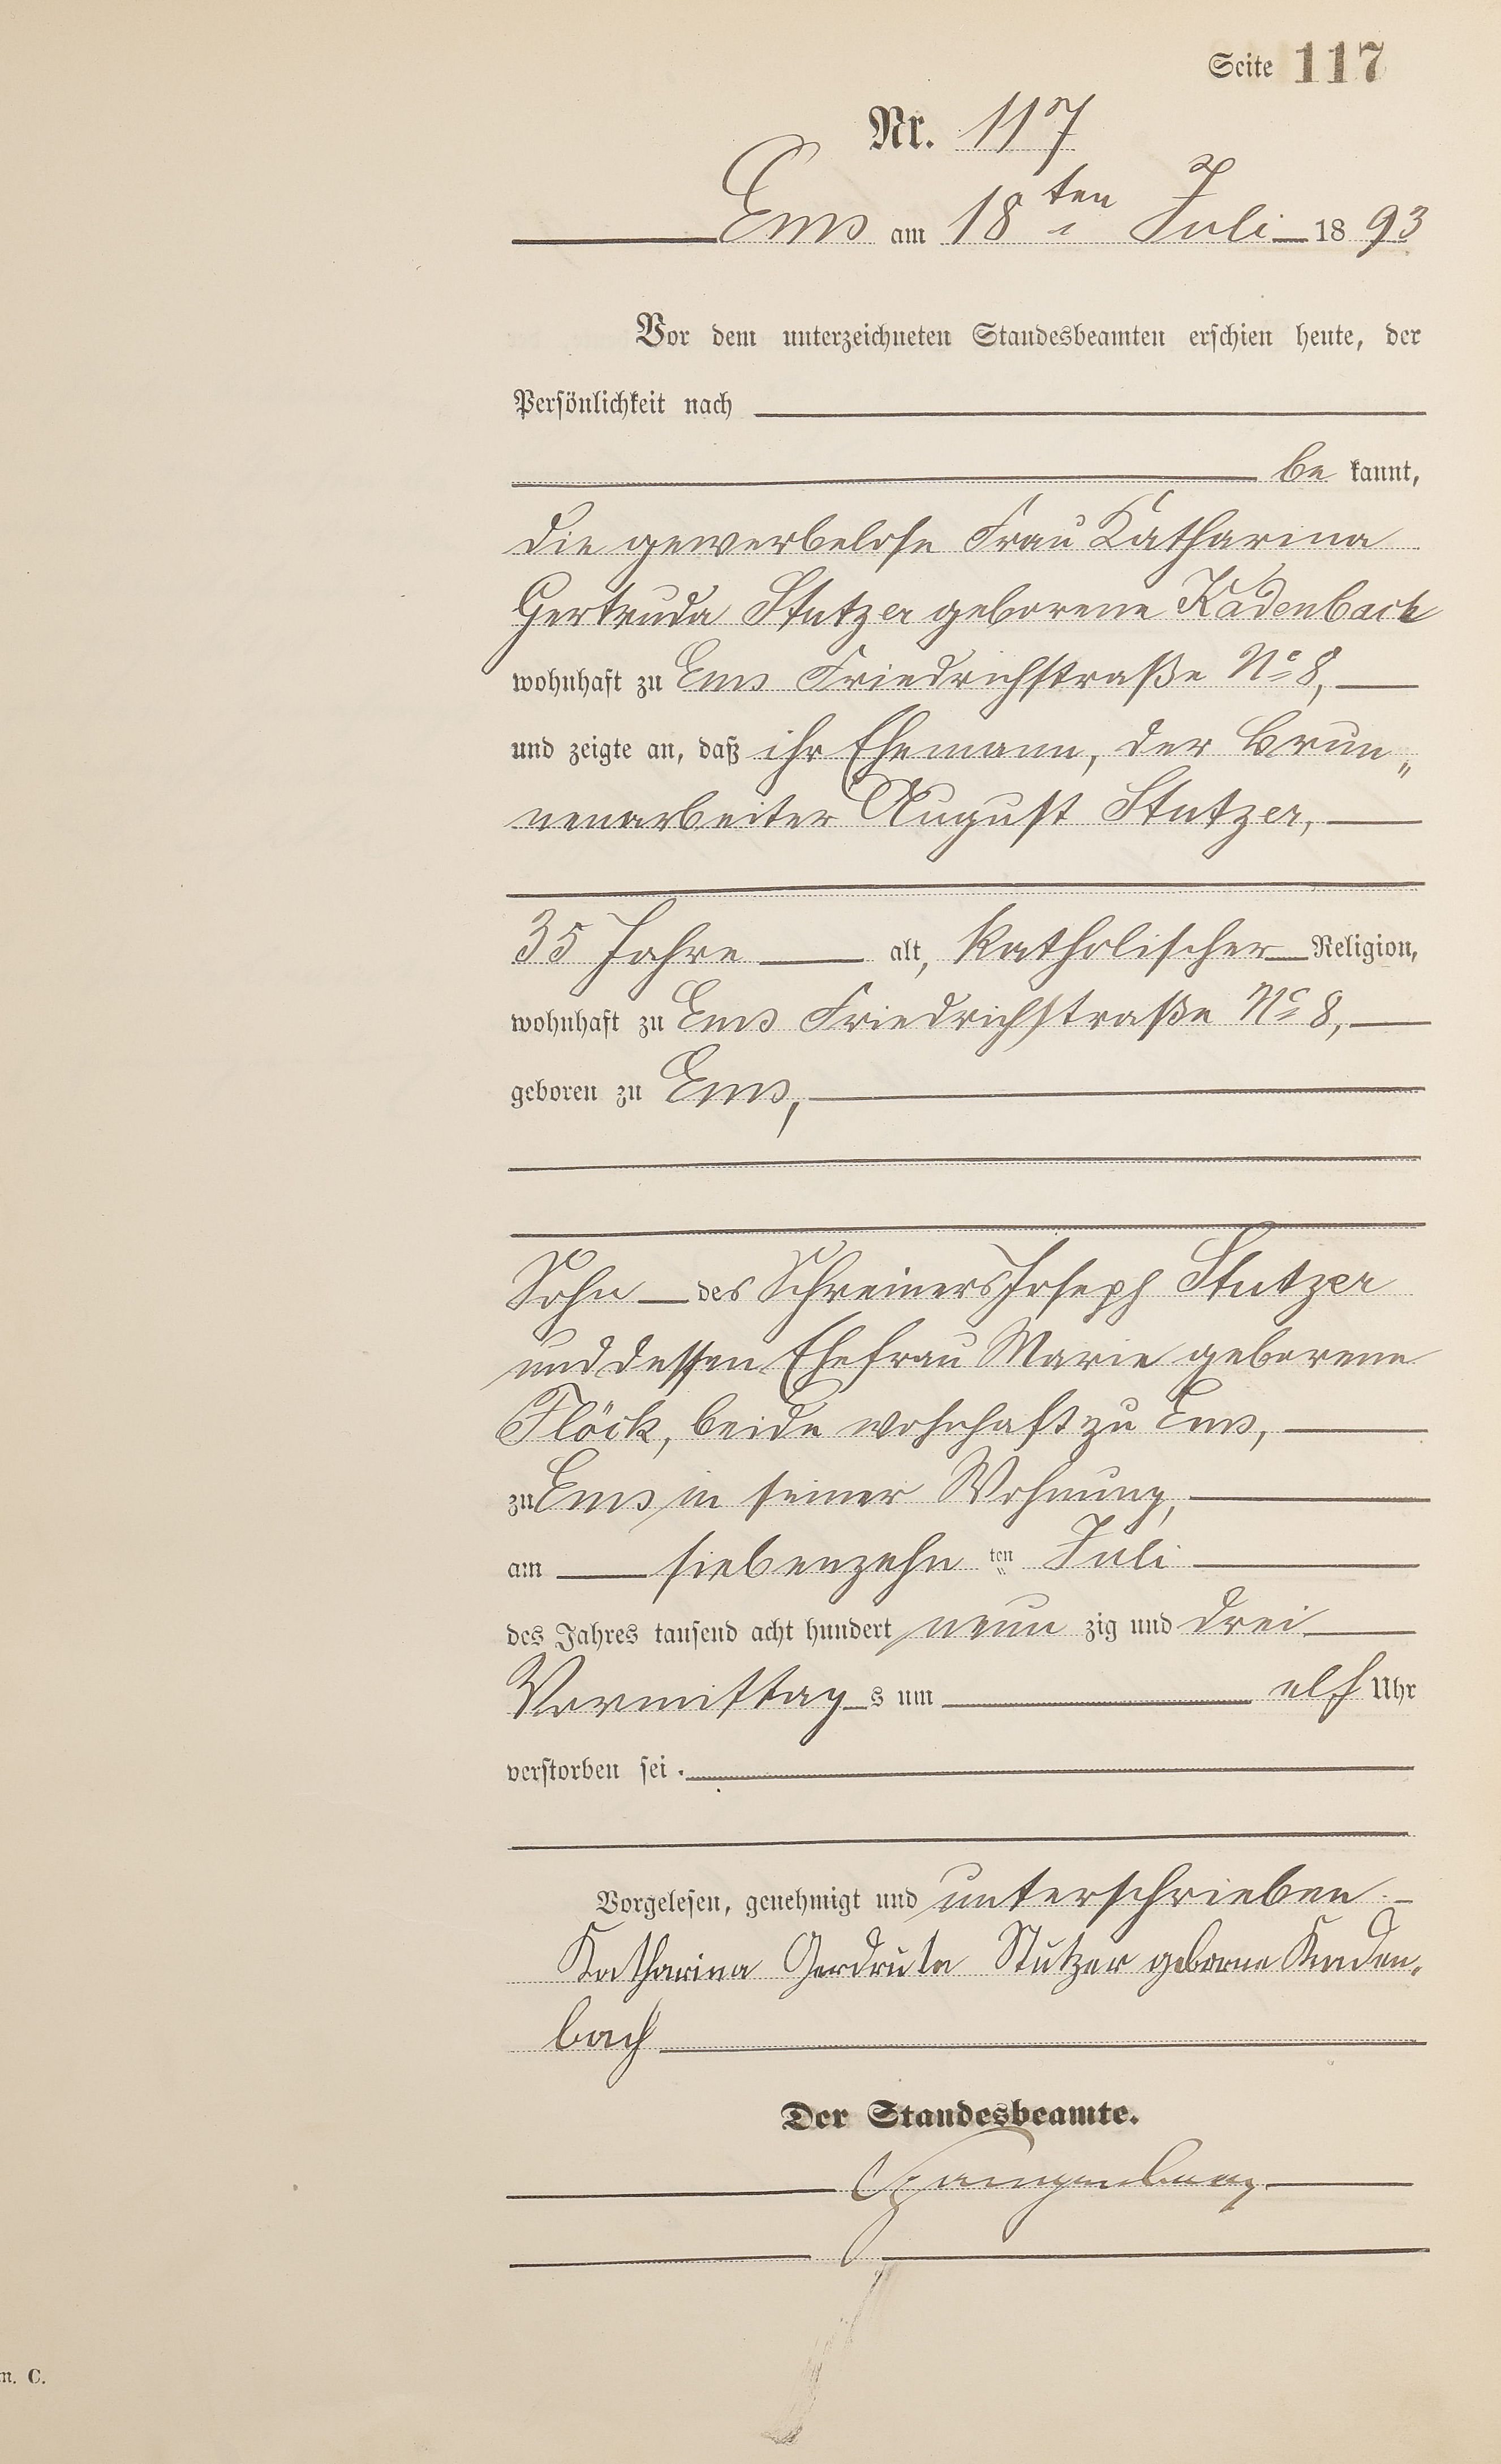 Seite 117
Nr. 117
Ems am 18ten Juli 1893
Vor dem unterzeichneten Standesbeamten erschien heute, der
Persönlichkeit nach
be kannt,
die gewerbelose Frau Katharina
Gertruda Stutzer geborene Kadenbach
wohnhaft zu Ems Friedrichstraße No 8,
und zeigte an, daß ihr Ehemann, der Brun„
nenarbeiter August Stutzer,
35 Jahre alt, katholischer Religion,
wohnhaft zu Ems Friedrichstraße No 8,
geboren zu Ems,
Sohn des Schreiners Joseph Stutzer
und dessen Ehefrau Marie geborene
Flöck, beide wohnhaft zu Ems,
zu Ems in seiner Wohnung,
am siebenzehn ten Juli
des Jahres tausend acht hundert neun zig und drei
Vormittag s um elf Uhr
verstorben sei.
Vorgelesen, genehmigt und unterschrieben
Katharina Gerdruta Stutzer geborne Kaden,
bach
Der Standesbeamte.
Spangenberg
n. C.